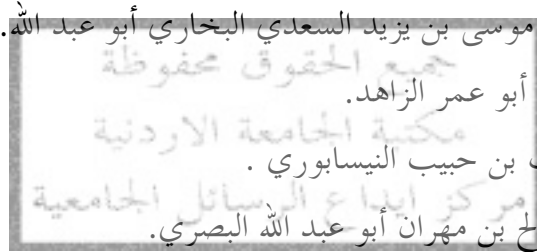 موسى بن يزيد السعدي البخاري أبو عبد الله.
جميع الحقوق محفوظة
أبو عمر الزاهد.
مكتبة الجامعة الاردنية
بن حبيب النيسابوري .
مركز ايداع الرسائل الجامعية
بن مهران أبو عبد الله البصري.